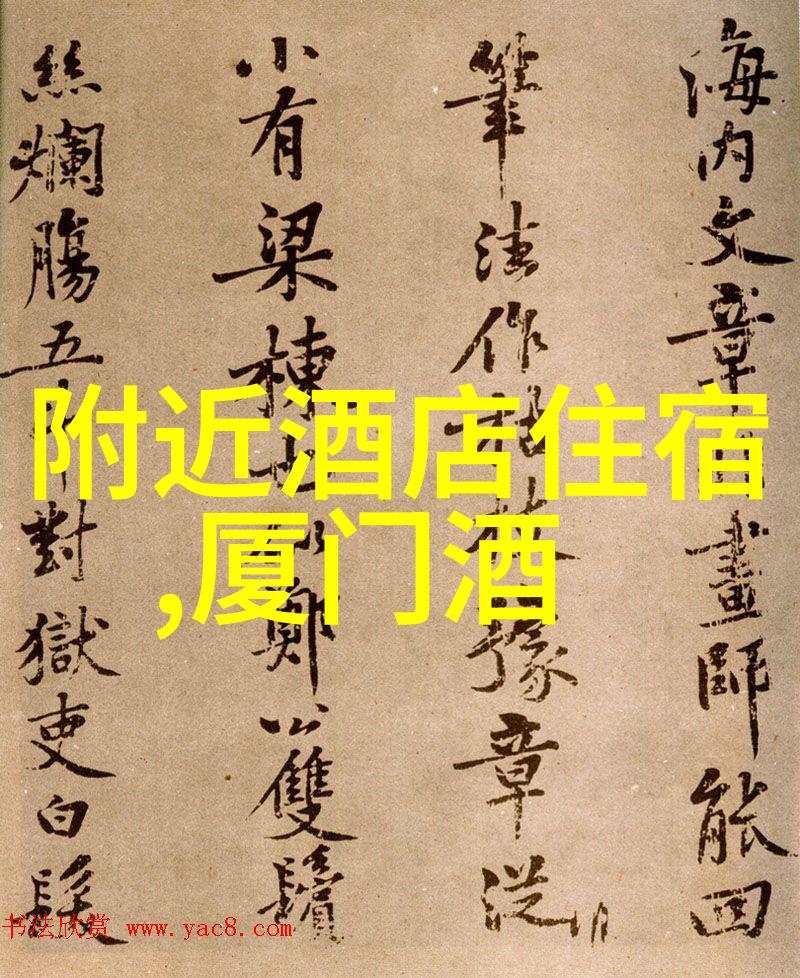 海内文章畫師能回
筆法作枯林豫章從
小有梁棟也似鄭公雙鬢
絲爛腸五斗對獄吏白髮
附近酒店住宿
,厦门酒
书法欣赏 www.yac8.com